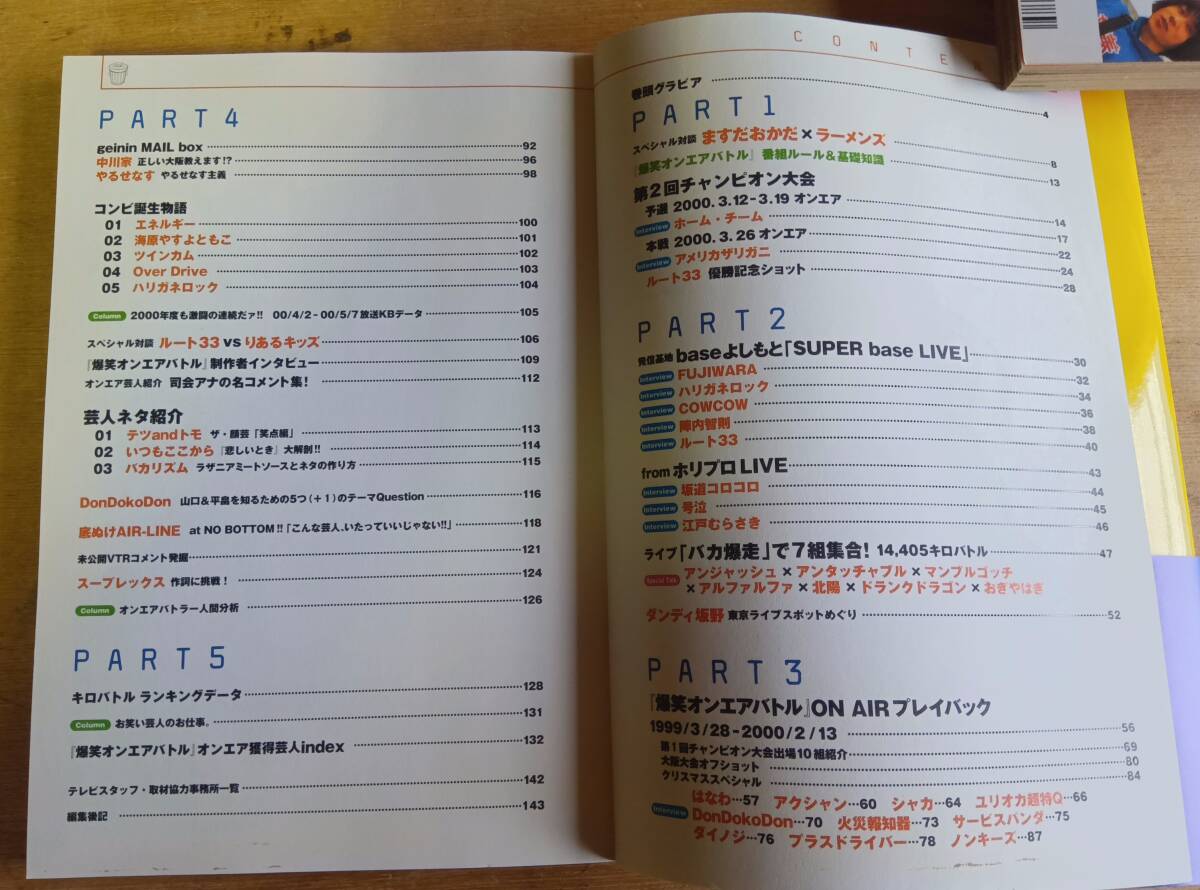 CONTE
巻頭グラビア 4
PART1
スペシャル対談 ますだおかだ×ラーメンズ 8
『爆笑オンエアバトル』番組ルール&基礎知識 13
第2回チャンピオン大会
予選 2000.3.12-3.19 オンエア 14
Interview ホーム・チーム 17
本戦 2000.3.26 オンエア 22
Interview アメリカザリガニ 24
ルート33 優勝記念ショット 28
PART2
発信基地 baseよしもと「SUPER base LIVE」 30
Interview FUJIWARA 32
Interview ハリガネロック 34
Interview COWCOW 36
Interview 陣内智則 38
Interview ルート33 40
from ホリプロ LIVE 43
Interview 坂道コロコロ 44
Interview 号泣 45
Interview 江戸むらさき 46
ライブ「バカ爆走」で7組集合! 14,405キロバトル 47
Special Talk アンジャッシュ×アンタッチャブル×マンブルゴッチ
×アルファルファ×北陽×ドランクドラゴン×おぎやはぎ
ダンディ坂野 東京ライブスポットめぐり 52
PART3
『爆笑オンエアバトル』ON AIRプレイバック
1999/3/28-2000/2/13 56
第1回チャンピオン大会出場10組紹介 69
大阪大会オフショット 80
クリスマススペシャル 84
はなわ…57 アクシャン…60 シャカ…64 ユリオカ超特Q…66
Interview DonDokoDon…70 火災報知器…73 サービスパンダ…75
ダイノジ…76 プラスドライバー…78 ノンキーズ…87
PART4
geinin MAIL box 92
中川家 正しい大阪教えます!? 96
やるせなす やるせなす主義 98
コンビ誕生物語
01 エネルギー 100
02 海原やすよともこ 101
03 ツインカム 102
04 Over Drive 103
05 ハリガネロック 104
Column 2000年度も激闘の連続だァ!! 00/4/2-00/5/7放送KBデータ 105
スペシャル対談 ルート33 VS りあるキッズ 106
『爆笑オンエアバトル』制作者インタビュー 109
オンエア芸人紹介 司会アナの名コメント集! 112
芸人ネタ紹介
01 テツandトモ ザ・顔芸「笑点編」 113
02 いつもここから『悲しいとき』大解剖!! 114
03 バカリズム ラザニアミートソースとネタの作り方 115
DonDokoDon 山口&平畠を知るための5つ(+1)のテーマQuestion 116
底ぬけAIR-LINE at NO BOTTOM!!「こんな芸人、いたっていいじゃない!!」 118
未公開VTRコメント発掘 121
スープレックス 作詞に挑戦! 124
Column オンエアバトラー人間分析 126
PART5
キロバトル ランキングデータ 128
Column お笑い芸人のお仕事。 131
『爆笑オンエアバトル』オンエア獲得芸人index 132
テレビスタッフ・取材協力事務所一覧 142
編集後記 143